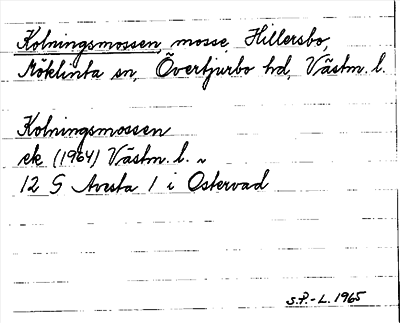 Kolningsmossen, mosse, Hillersbo,
Möklinta sn, Övertjurbo hd, Västm. l.
Kolningsmossen
ek (1964) Västm. l. ~
12 G Avesta 1 i Ostervad
S.P.-L. 1965